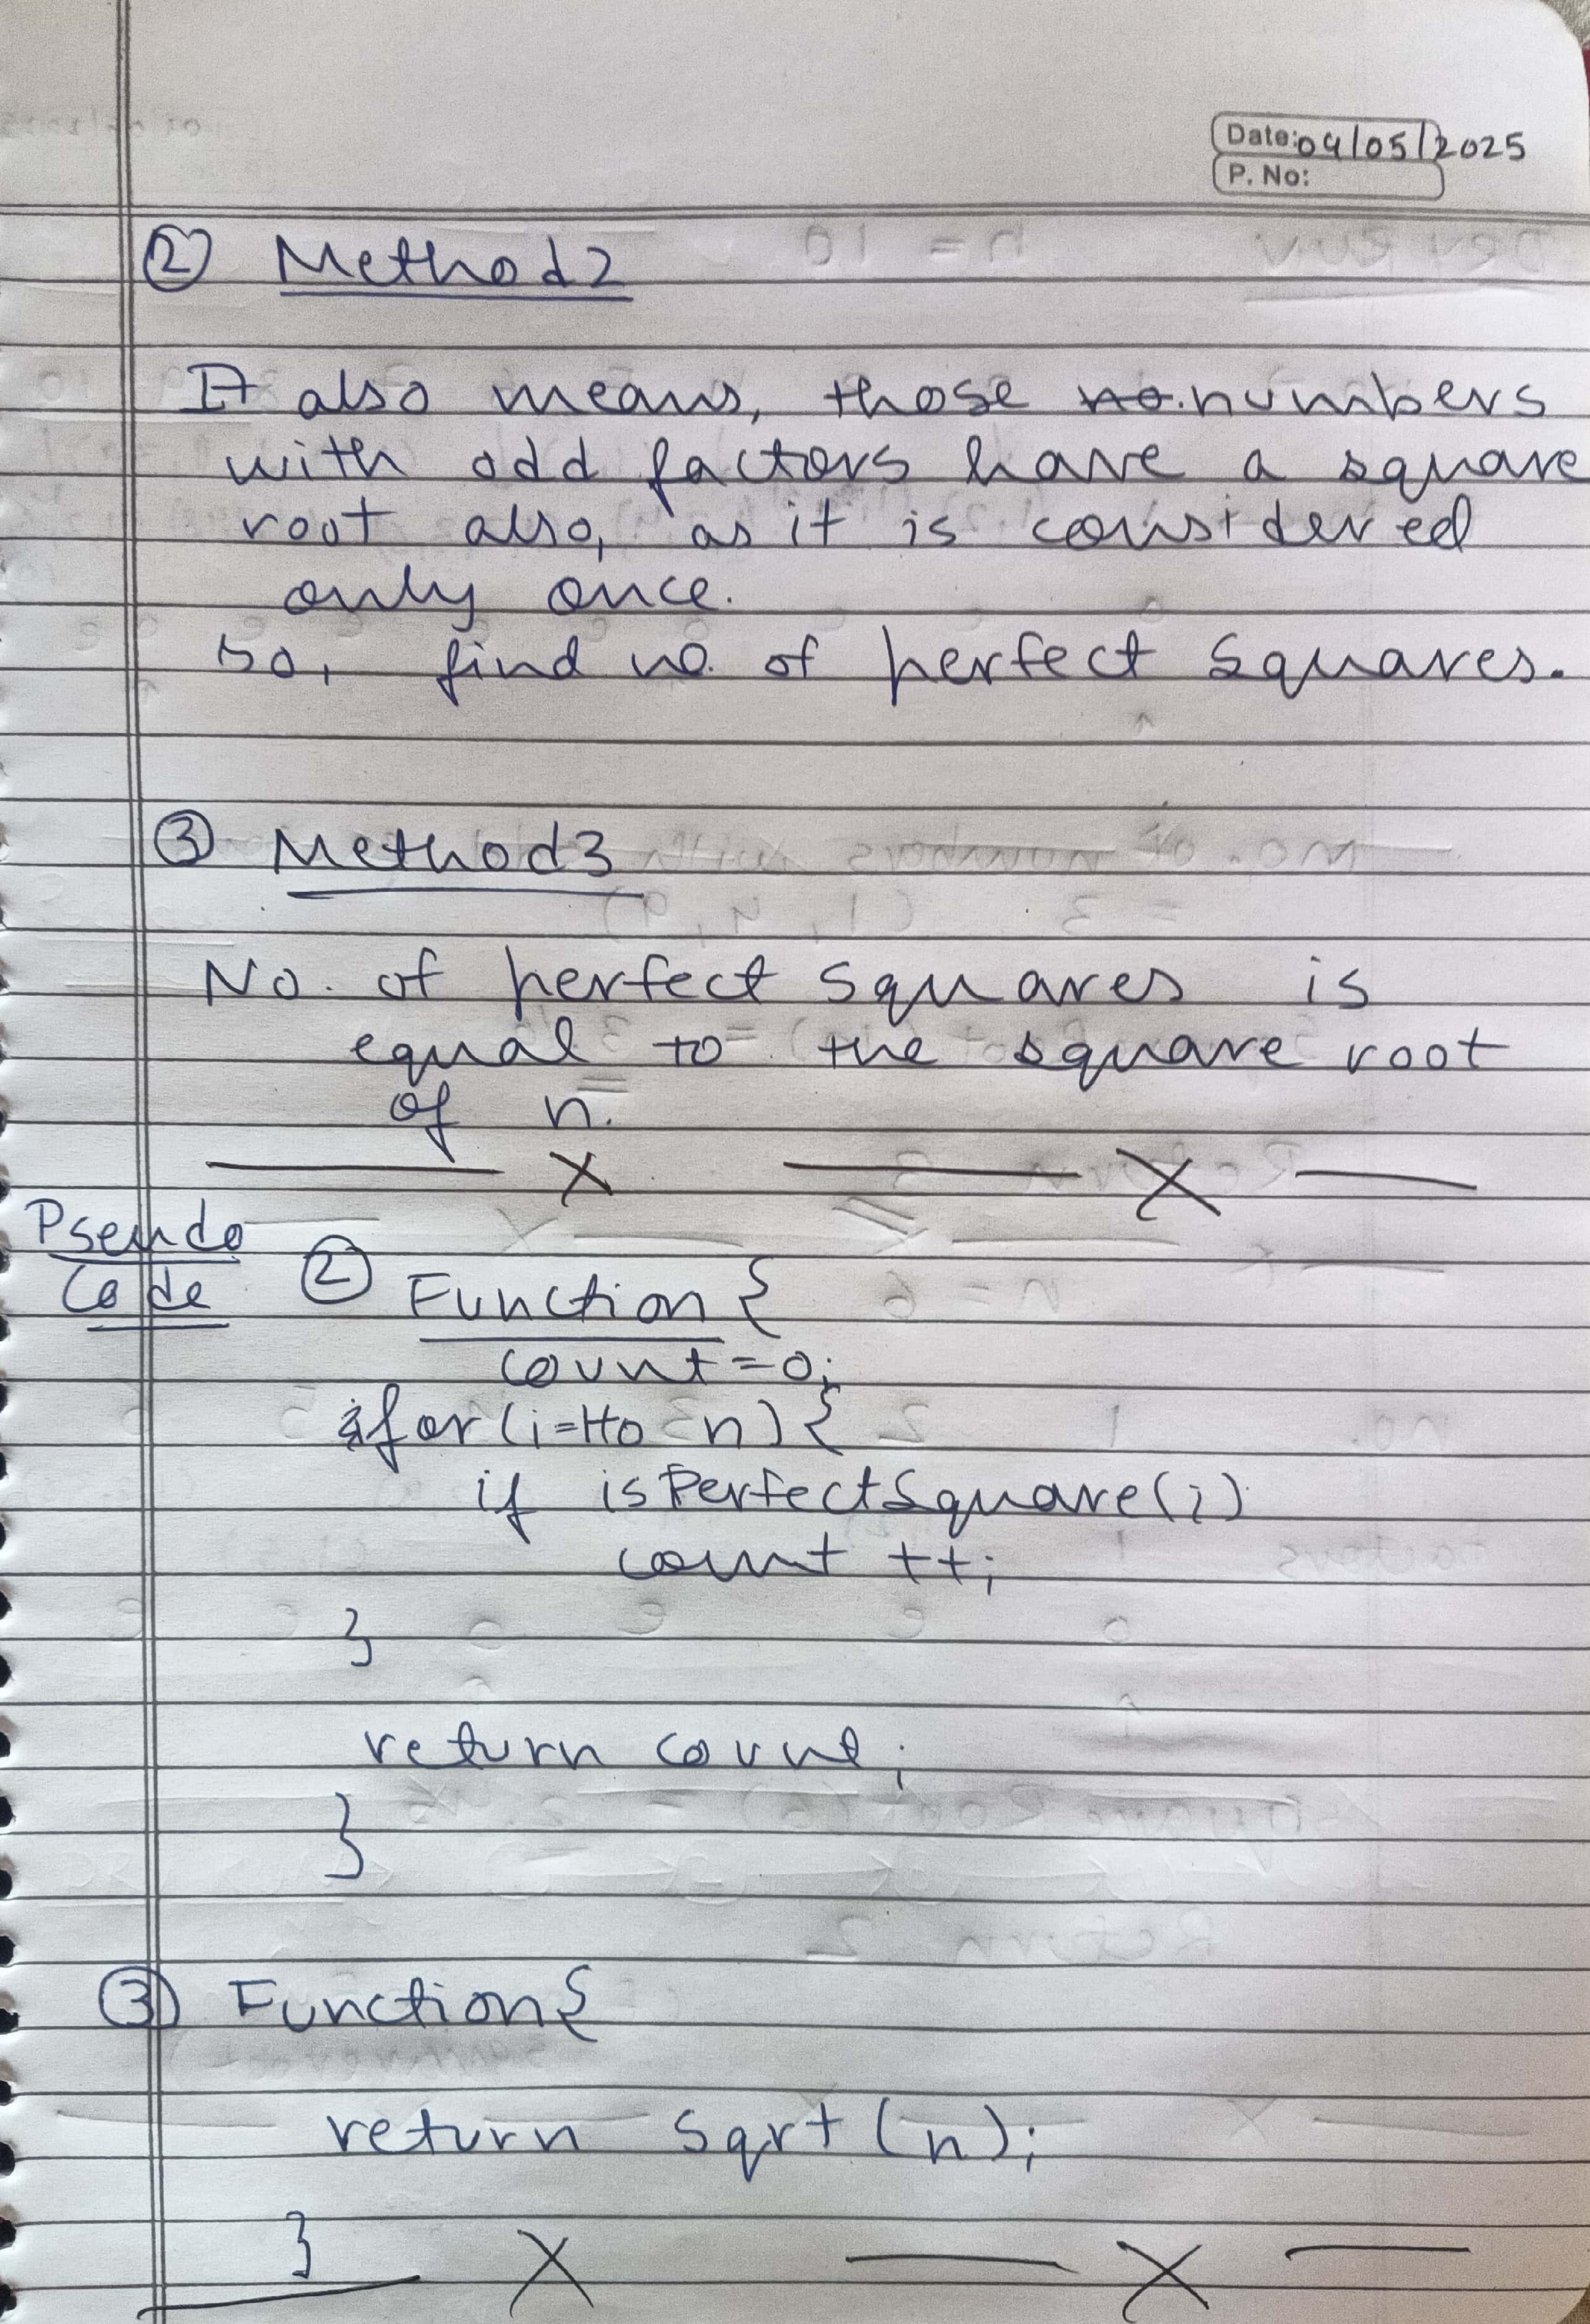 Date: 04/05/2025
P. No:
② Method2
It also means, those no. numbers
with odd factors have a square
root also, as it is considered
only once.
so, find no. of perfect squares.
③ Method3
No. of perfect squares is
equal to the square root
of n.
Pseudo
Code
② Function {
count=0;
for(i=1to n){
if isPerfectSquare(i)
count ++;
}
return count;
}
③ Function{
return sqrt(n);
}